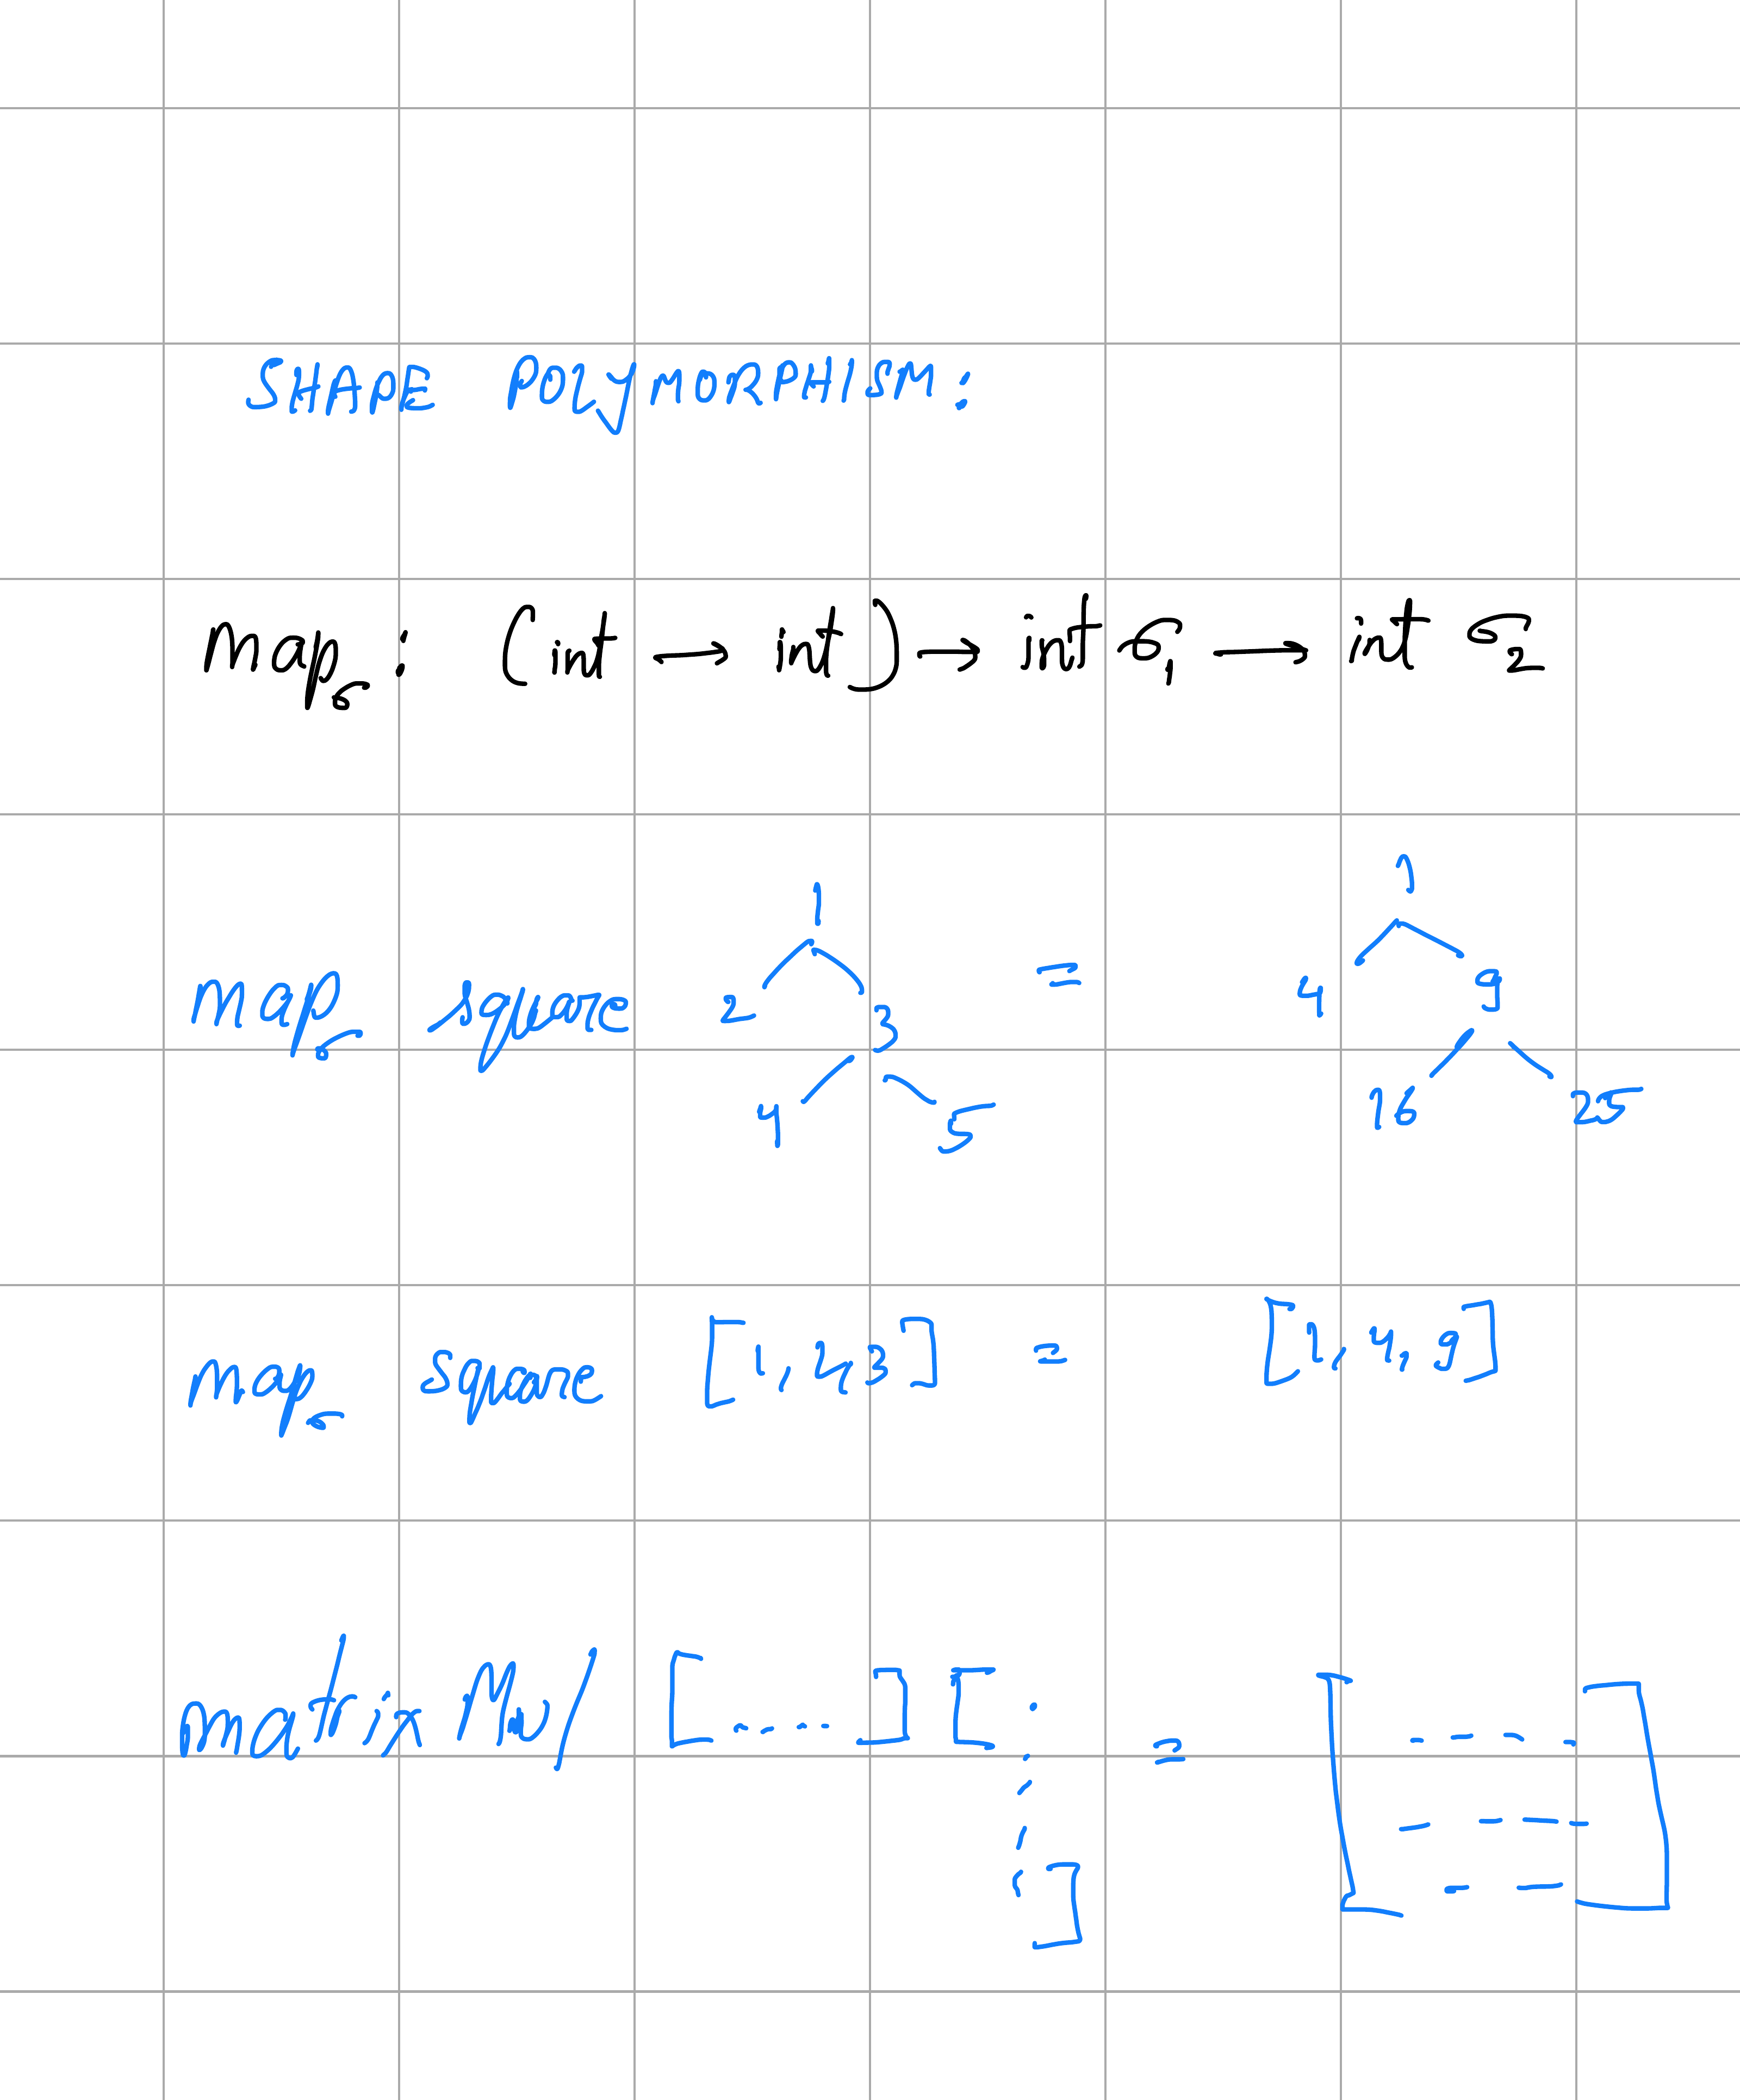 SHAPE POLYMORPHISM:
map_σ : (int → int) → int σ₁ → int σ₂
1 1
map_σ square 2 3 = 4 9
4 5 16 25
map_σ square [1, 2, 3] = [1, 4, 9]
matrix Mul [.....] [.....] = [ ]